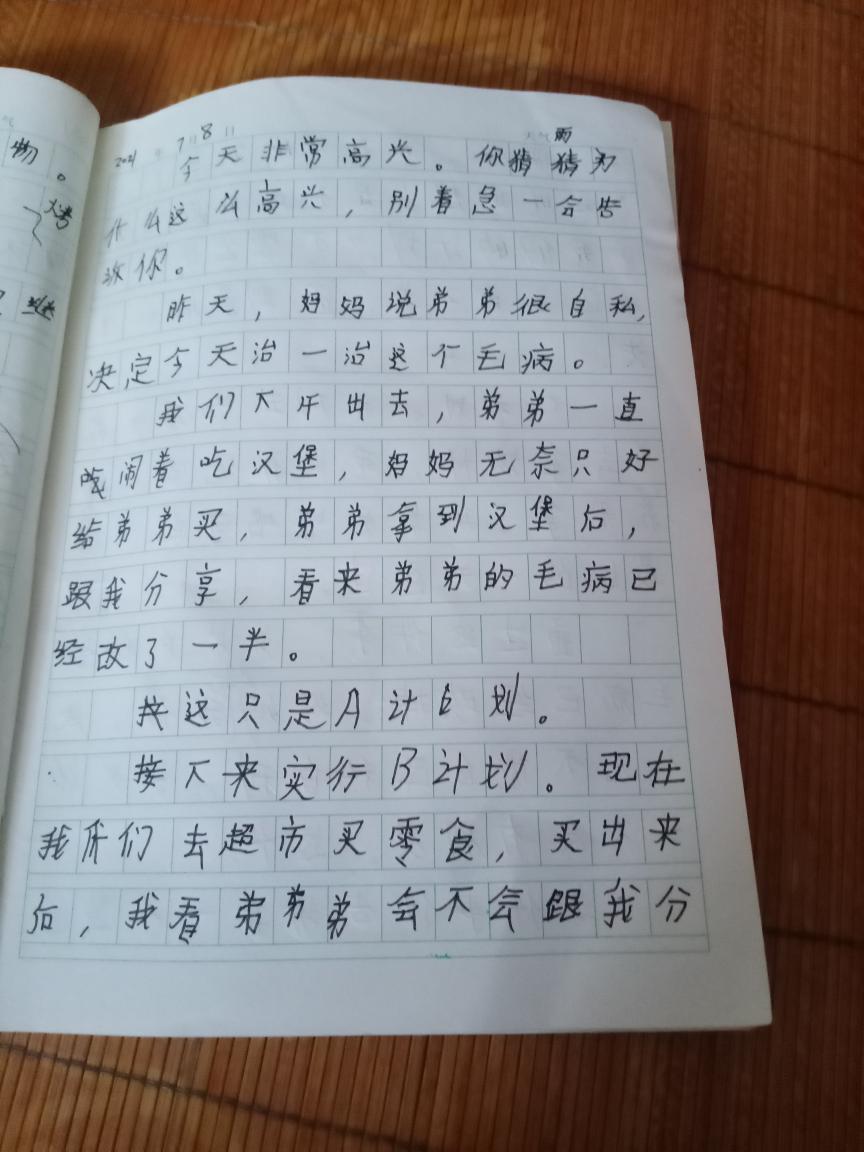 物。
2021 年 7月8日 天气 雨
今天非常高兴。你猜猜为
什么这么高兴，别着急一会告
诉你。
昨天，妈妈说弟弟很自私，
决定今天治一治这个毛病。
我们下午出去，弟弟一直
吵闹着吃汉堡，妈妈无奈只好
给弟弟买，弟弟拿到汉堡后，
跟我分享，看来弟弟的毛病已
经改了一半。
接这只是A计划。
接下来实行B计划。现在
我们去超市买零食，买出来
后，我看弟弟弟会不会跟我分